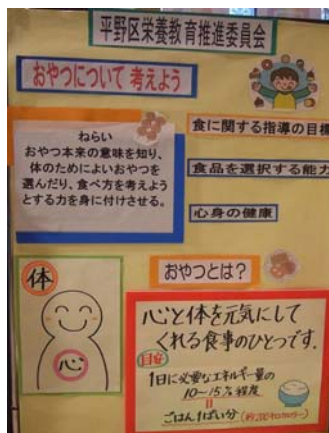 平野区栄養教育推進委員会
おやつについて 考えよう
ねらい
おやつ本来の意味を知り、
体のためによいおやつを
選んだり、食べ方を考えよう
とする力を身に付けさせる。
食に関する指導の目標
食品を選択する能力
心身の健康
体
心
おやつとは?
心と体を元気にして
くれる食事のひとつです。
目安
1日に必要なエネルギー量の
10~15%程度
ごはん1ぱい分(約200キロカロリー)